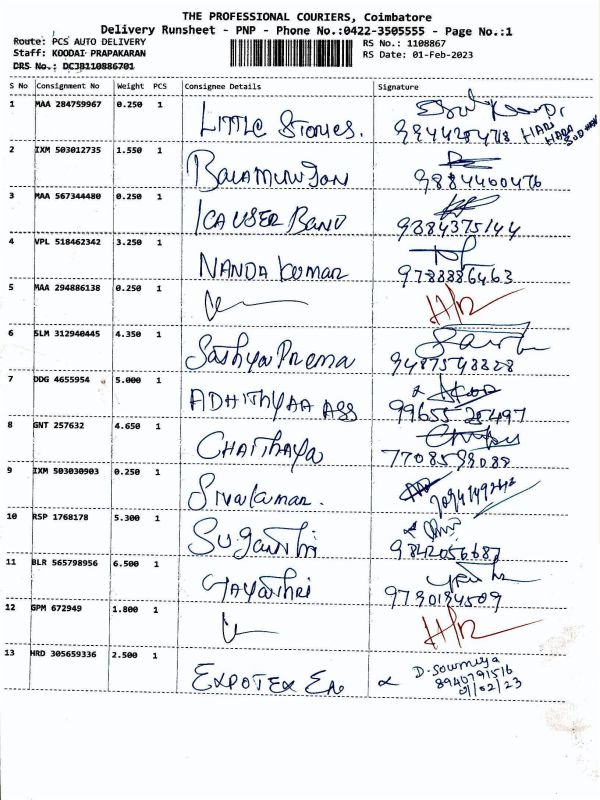 THE PROFESSIONAL COURIERS, Coimbatore
Delivery Runsheet - PNP - Phone No.:0422-3505555 - Page No.:1
Route: PCS AUTO DELIVERY
RS No.: 1108867
Staff: KOODAI PRAPAKARAN
RS Date: 01-Feb-2023
DRS No.: DCJB110886701
S No Consignment No Weight PCS Consignee Details Signature
1 MAA 284759967 0.250 1
LITTLE Stories.
2 IXM 503012735 1.550 1
BALAMURUGAN 9884460476
3 MAA 567344480 0.250 1
ICA USER BAND 9384375144
4 VPL 518462342 3.250 1
NANDA Kumar 9788886463
5 MAA 294886138 0.250 1
H/R
6 SLM 312940445 4.350 1
Sathya Prema 9487548828
7 DDG 4655954 5.000 1
ADHITHYAA ASS 99655 25497
8 GNT 257632 4.650 1
CHAITHAYA 7708598088
9 IXM 503030903 0.250 1
Sivakumar.
10 RSP 1768178 5.300 1
Suganthi 9842056687
11 BLR 565798956 6.500 1
Gayathri 9790184509
12 GPM 672949 1.800 1
H/R
13 HRD 305659336 2.500 1
D. Soumiya
EXPOTEX En 8940791516
01/02/23